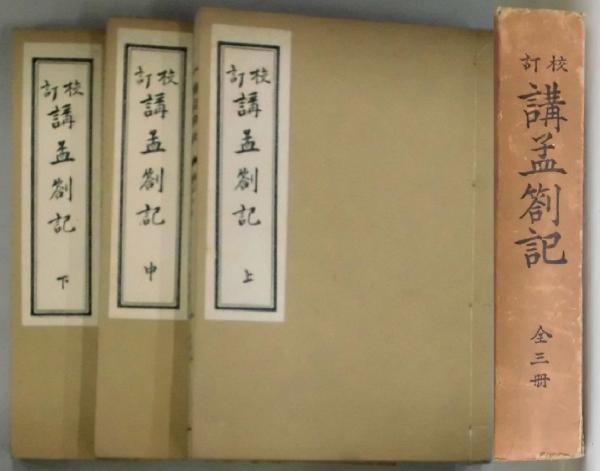 校訂
講孟劄記
上
校訂
講孟劄記
中
校訂
講孟劄記
下
校訂
講孟劄記
全三冊